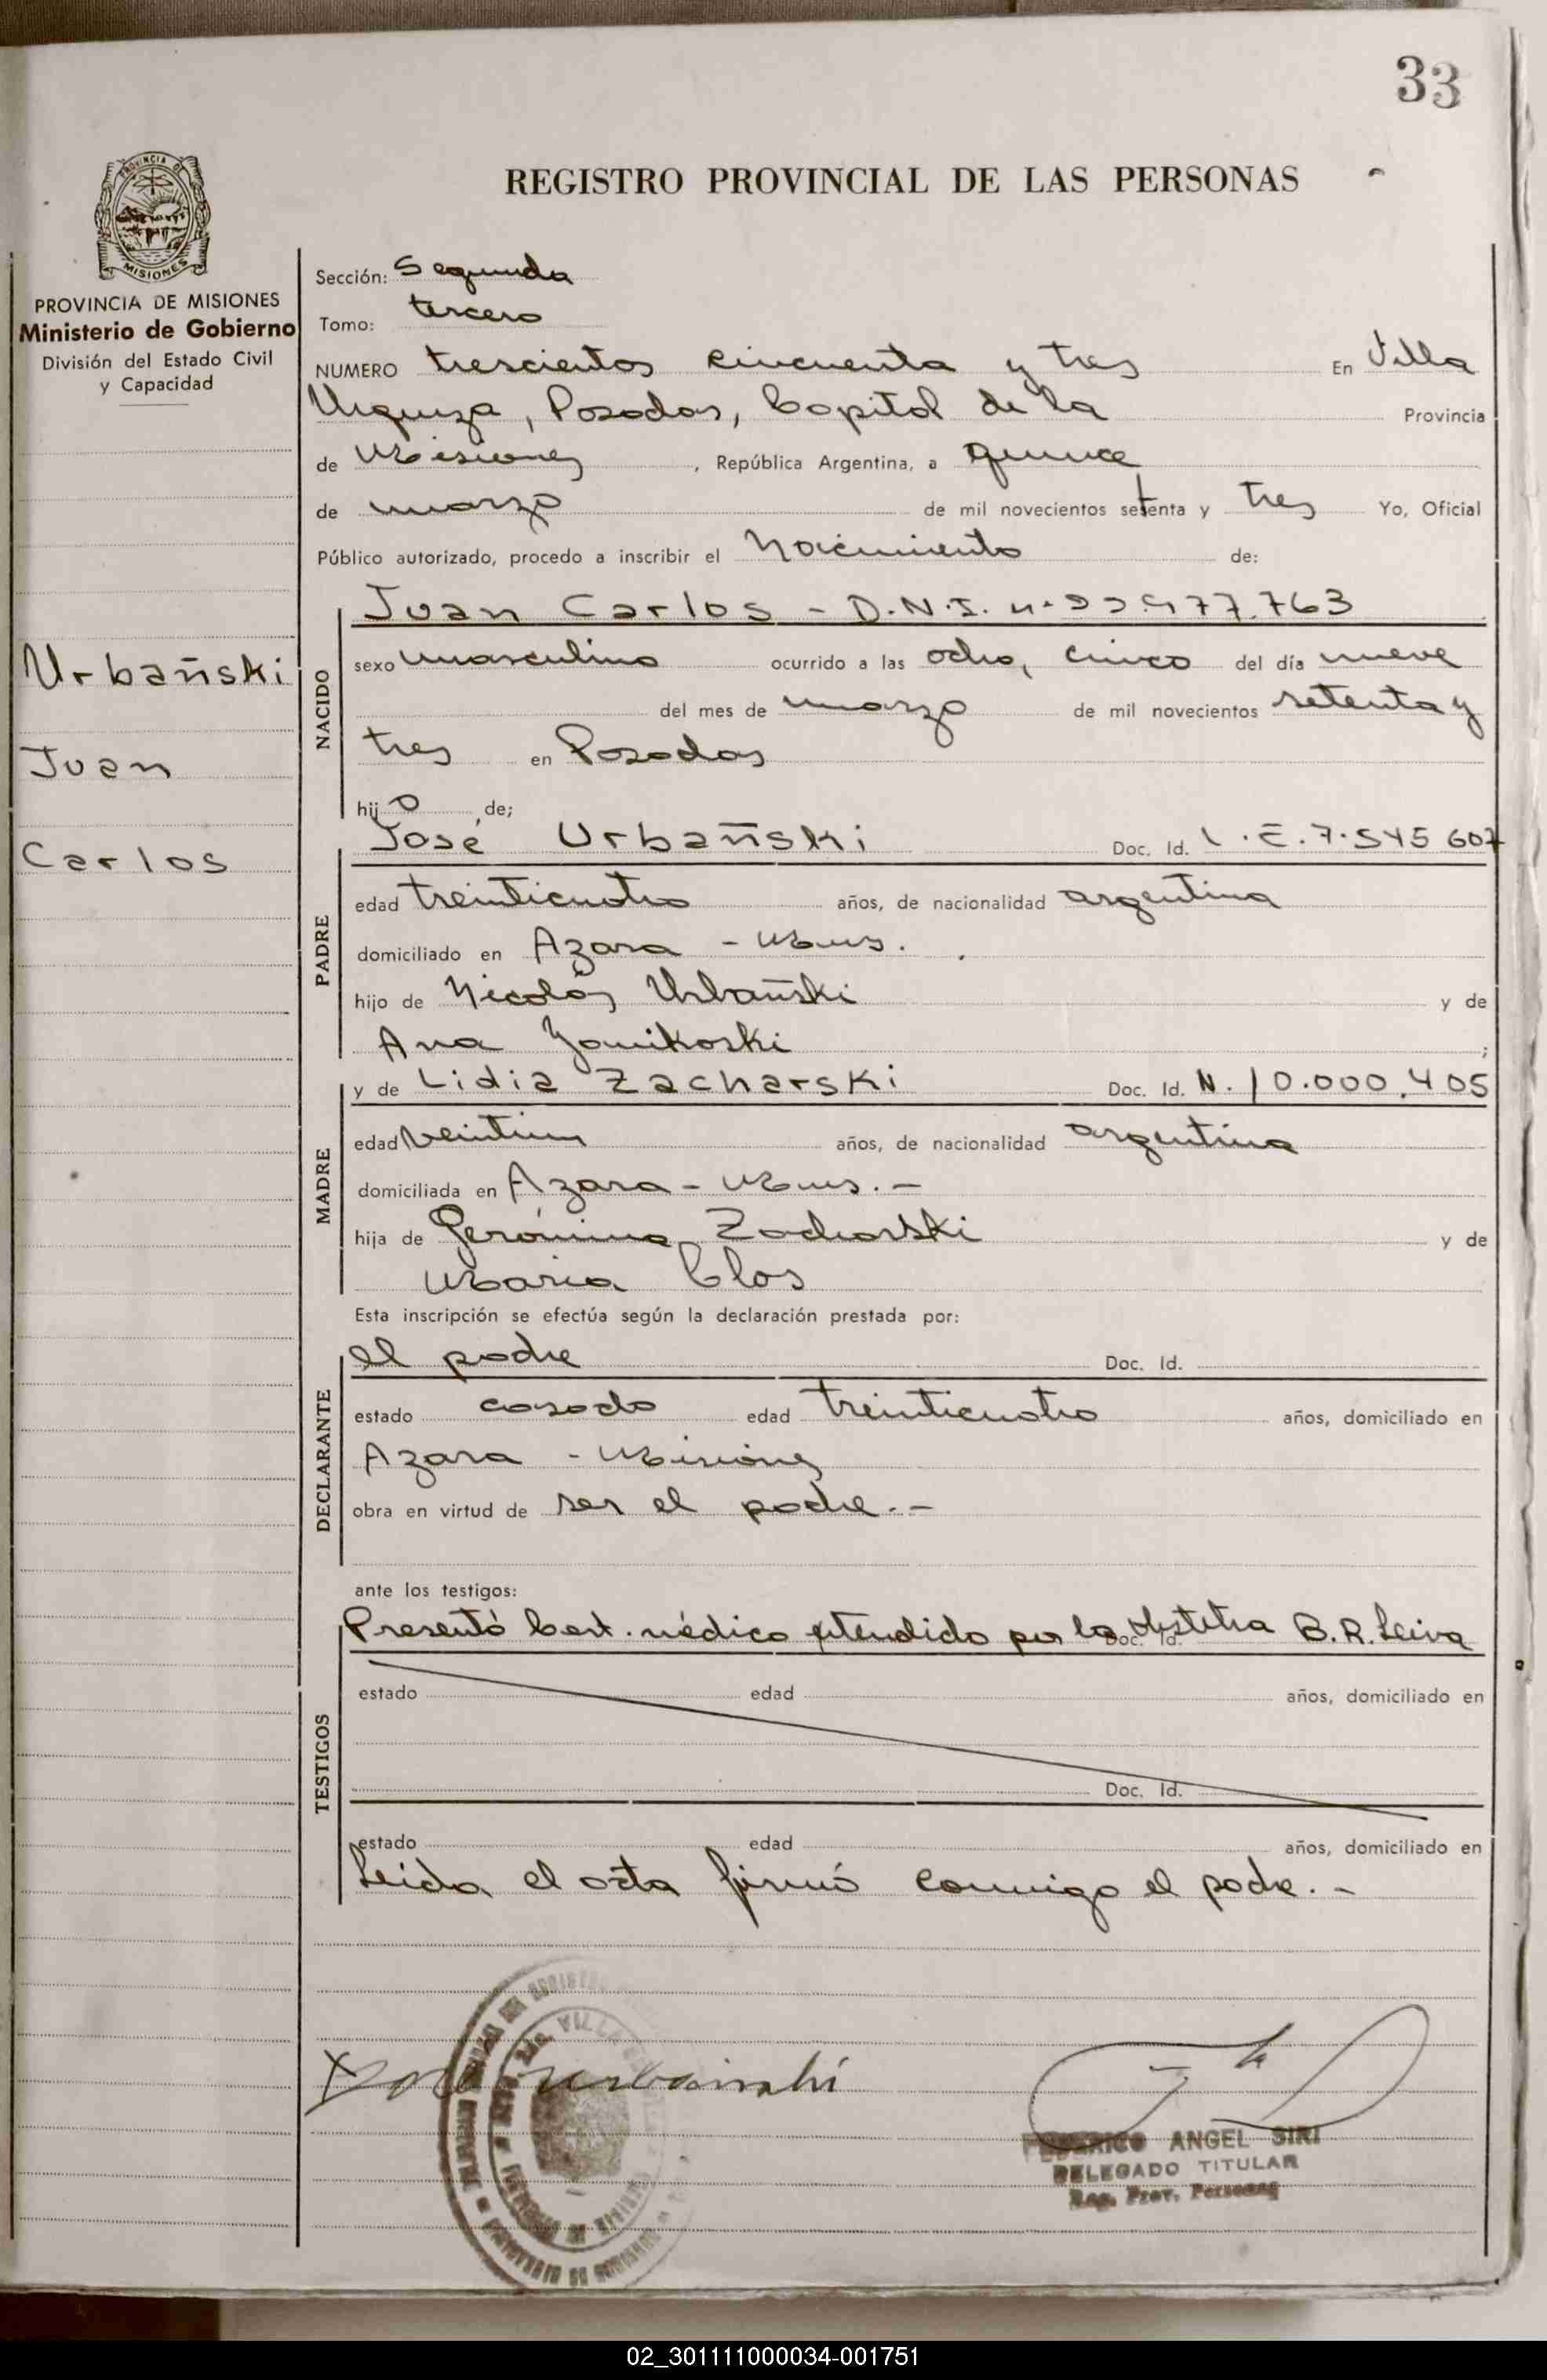 33
REGISTRO PROVINCIAL DE LAS PERSONAS
PROVINCIA DE MISIONES
Ministerio de Gobierno
División del Estado Civil
y Capacidad
Urbañski
Juan
Carlos
Sección: Segunda
Tomo: tercero
NUMERO trescientos cincuenta y tres En Villa
Urquiza, Posadas, Capital de la Provincia
de Misiones, República Argentina, a quince
de marzo de mil novecientos setenta y tres Yo, Oficial
Público autorizado, procedo a inscribir el Nacimiento de:
NACIDO
Juan Carlos - D.N.I. nº 22.977.763
sexo masculino ocurrido a las ocho, cinco del día nueve
del mes de marzo de mil novecientos setenta y
tres en Posadas
hijo de;
PADRE
José Urbañski Doc. Id. L.E.7.545 607
edad treinticuatro años, de nacionalidad argentina
domiciliado en Azara - Mnes.
hijo de Nicolás Urbañski y de
Ana Yanikoski ;
MADRE
y de Lidia Zacharski Doc. Id. N. 10.000.405
edad veintiun años, de nacionalidad argentina
domiciliada en Azara - Mnes. -
hija de Gerónimo Zacharski y de
Maria Clos
Esta inscripción se efectúa según la declaración prestada por:
DECLARANTE
el padre Doc. Id.
estado casado edad treinticuatro años, domiciliado en
Azara - Misiones
obra en virtud de ser el padre. -
ante los testigos:
TESTIGOS
Presentó Cert. médico extendido por la obstetra B.R. Leiva
Doc. Id.
estado edad años, domiciliado en
Doc. Id.
estado edad años, domiciliado en
Leída el acta firmó conmigo el padre. -
José Urbanski
FEDERICO ANGEL SIRI
DELEGADO TITULAR
Reg. Prov. Personas
02_301111000034-001751